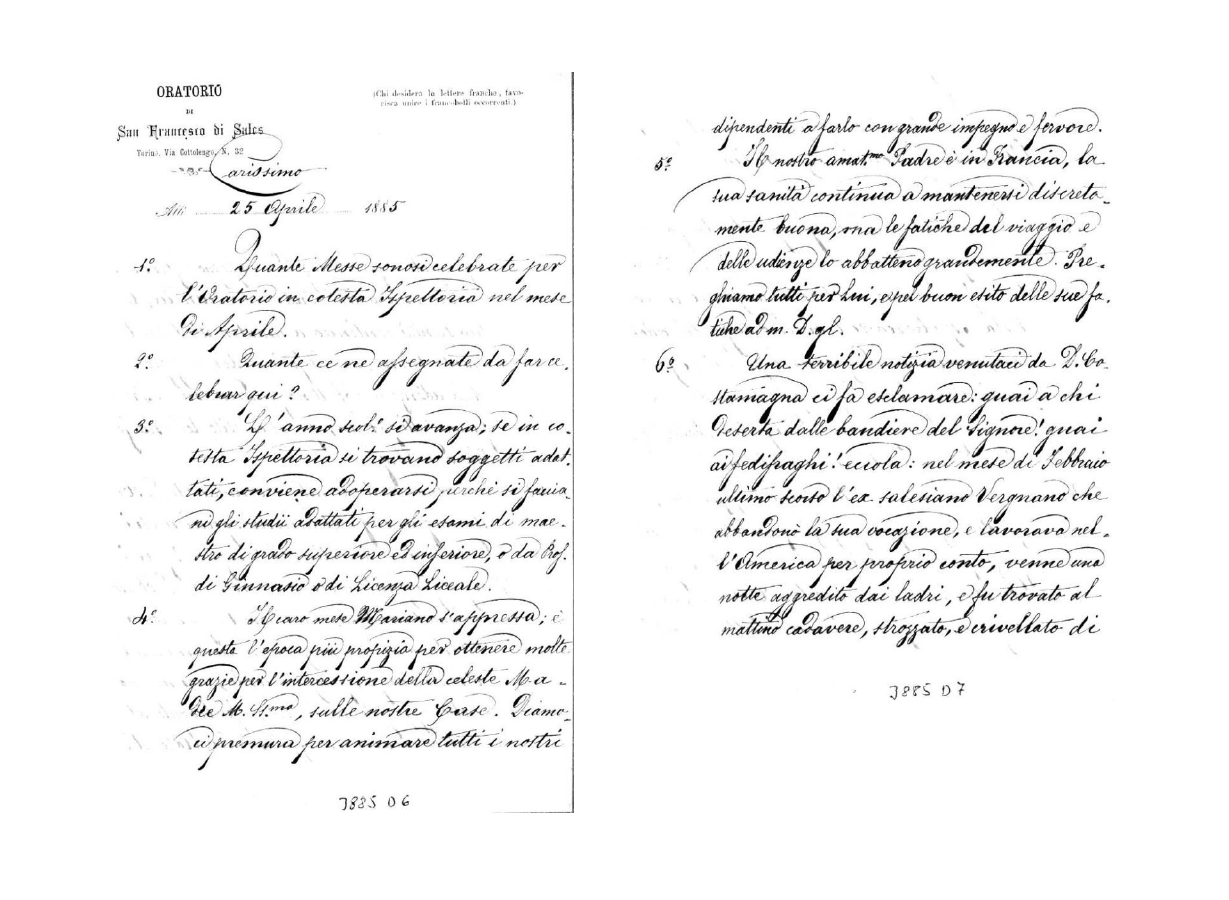 ORATORIO
DI
San Francesco di Sales
Torino, Via Cottolengo, N. 32
(Chi desidera la lettera franca, favo-
risca unire i francobolli occorrenti.)
Carissimo
Addì 25 Aprile 1885
1º Quante Messe sonosi celebrate per
l'Oratorio in cotesta Ispettoria nel mese
di Aprile.
2º Quante ce ne assegnate da far ce-
lebrar qui?
3º L'anno scol: si avanza; se in co-
testa Ispettoria si trovano soggetti adat-
tati, conviene adoperarsi perché si faccia-
no gli studii adattati per gli esami di mae-
stro di grado superiore ed inferiore, o da Prof.
di Ginnasio o di Licenza Liceale.
4º Il caro mese Mariano s'appressa; è
questa l'epoca più propizia per ottenere molte
grazie per l'intercessione della celeste Ma-
dre M. SS.ma, sulle nostre Case. Diamo-
ci premura per animare tutti i nostri
J885 D6
dipendenti a farlo con grande impegno e fervore.
5º Il nostro amat.mo Padre è in Francia, la
sua sanità continua a mantenersi discreta-
mente buona, ma le fatiche del viaggio e
delle udienze lo abbatteno grandemente. Pre-
ghiamo tutti per Lui, e pel buon esito delle sue fa-
tiche ad m. D. gl.
6º Una terribile notizia venutaci da D. Co-
stamagna ci fa esclamare: guai a chi
deserta dalle bandiere del Signore! guai
ai fedifraghi! eccola: nel mese di Febbraio
ultimo scorso l'ex salesiano Vergnano che
abbandonò la sua vocazione, e lavorava nel-
l'America per proprio conto, venne una
notte aggredito dai ladri, e fu trovato al
mattino cadavere, strozzato, e crivellato di
J885 D7